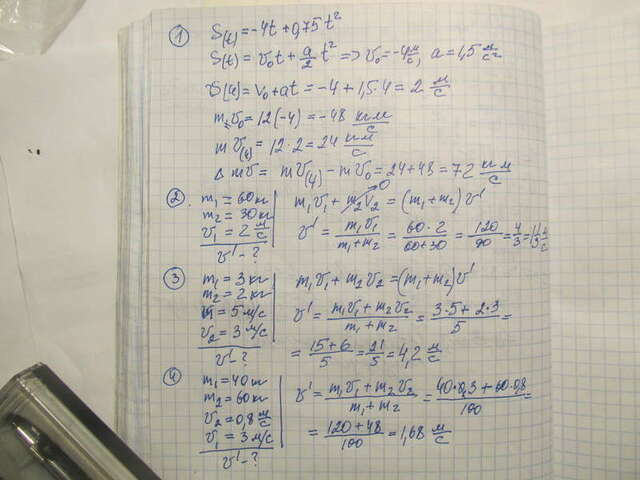 ① S(t) = -4t + 0,75t²
S(t) = v₀t + a/2 t² => v₀ = -4 м/с, a = 1,5 м/с²
v(4) = v₀ + at = -4 + 1,5·4 = 2 м/с
m·v₀ = 12(-4) = -48 кг м/с
m v(4) = 12·2 = 24 кг м/с
Δ mv = mv(4) - mv₀ = 24 + 48 = 72 кг м/с
② m₁ = 60 кг
m₂ = 30 кг
v₁ = 2 м/с
v' - ?
m₁v₁ + m₂v₂ 0 = (m₁ + m₂) v'
v' = m₁v₁/m₁+m₂ = 60·2/60+30 = 120/90 = 4/3 = 1 1/3 м/с
③ m₁ = 3 кг
m₂ = 2 кг
= 5 м/с
v₂ = 3 м/с
v' - ?
m₁v₁ + m₂v₂ = (m₁ + m₂) v'
v' = m₁v₁ + m₂v₂/m₁ + m₂ = 3·5 + 2·3/5 =
= 15 + 6/5 = 21/5 = 4,2 м/с
④ m₁ = 40 кг
m₂ = 60 кг
v₂ = 0,8 м/с
v₁ = 3 м/с
v' - ?
v' = m₁v₁ + m₂v₂/m₁ + m₂ = 40·0,3 + 60·0,8/100 =
= 120 + 48/100 = 1,68 м/с